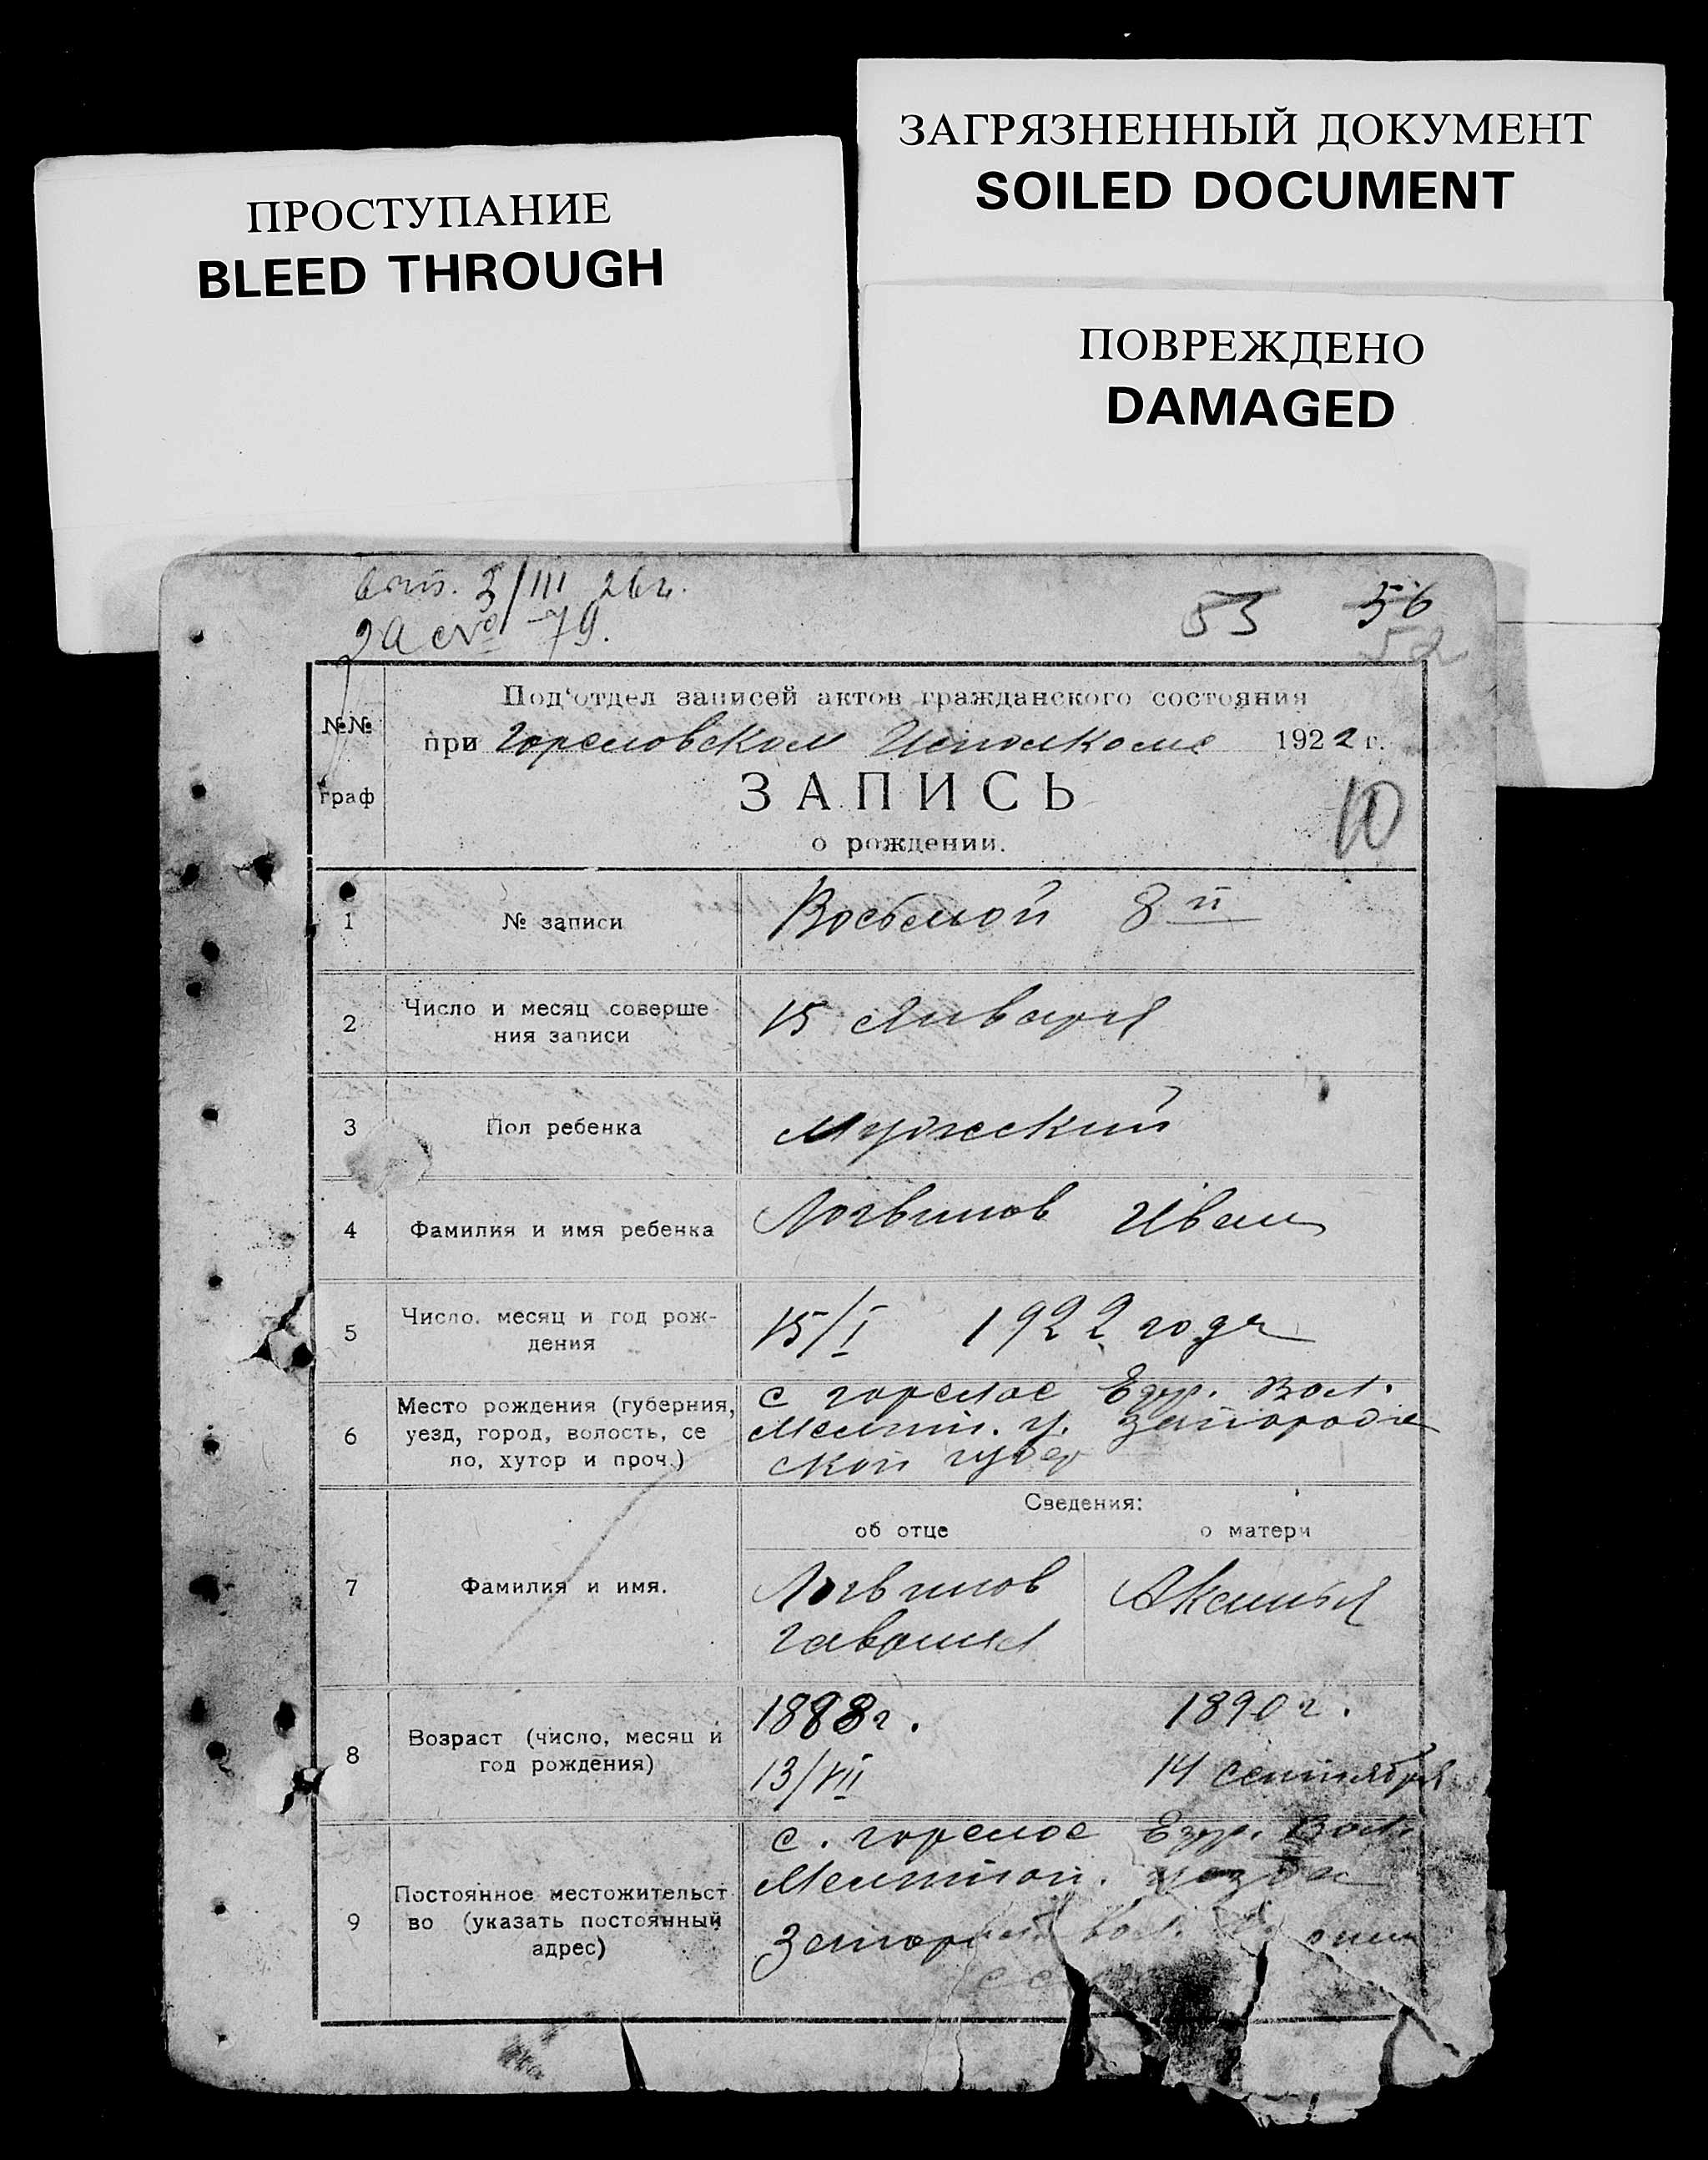 ЗАГРЯЗНЕННЫЙ ДОКУМЕНТ
SOILED DOCUMENT
ПРОСТУПАНИЕ
BLEED THROUGH
ПОВРЕЖДЕНО
DAMAGED
3/III 26г.
за № 79.
53 56
52
Под'отдел записей актов гражданского состояния
№№ граф
при Гореловском Исполкоме 1922 г.
ЗАПИСЬ
10
о рождении.
1 № записи Восьмой 8й
2 Число и месяц соверше
ния записи 15 Января
3 Пол ребенка Мужский
4 Фамилия и имя ребенка Логвинов Иван
5 Число, месяц и год рож-
дения 15/I 1922 года
6 Место рождения (губерния,
уезд, город, волость, се
ло, хутор и проч.)
с горелое Вол.
Мелит. у. Запорож
ской губер
Сведения:
об отце о матери
7 Фамилия и имя.
Логвинов Аксинья
Гавриил
8 Возраст (число, месяц и
год рождения)
1888г. 1890г.
13/VII 14 сентября
9 Постоянное местожительст
во (указать постоянный
адрес)
с. горелое Вол.
Мелитоп. уезда